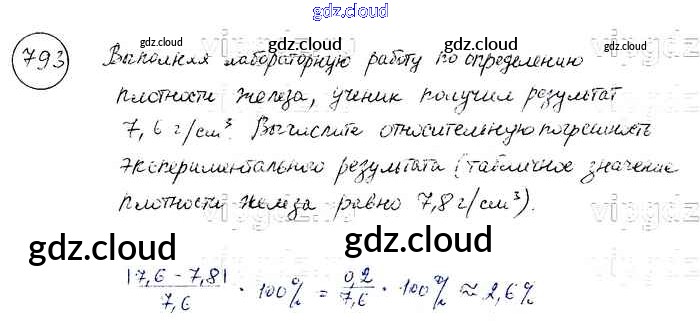 gdz.cloud
793 Выполняя лабораторную работу по определению
gdz.cloud gdz.cloud gdz.cloud
плотности железа, ученик получил результат
7,6 г/см³. Вычислите относительную погрешность
экспериментального результата (табличное значение
плотности железа равно 7,8 г/см³).
gdz.cloud gdz.cloud
|7,6 - 7,8| / 7,6 · 100% = 0,2 / 7,6 · 100% ≈ 2,6%
gdz.cloud gdz.cloud gdz.cloud